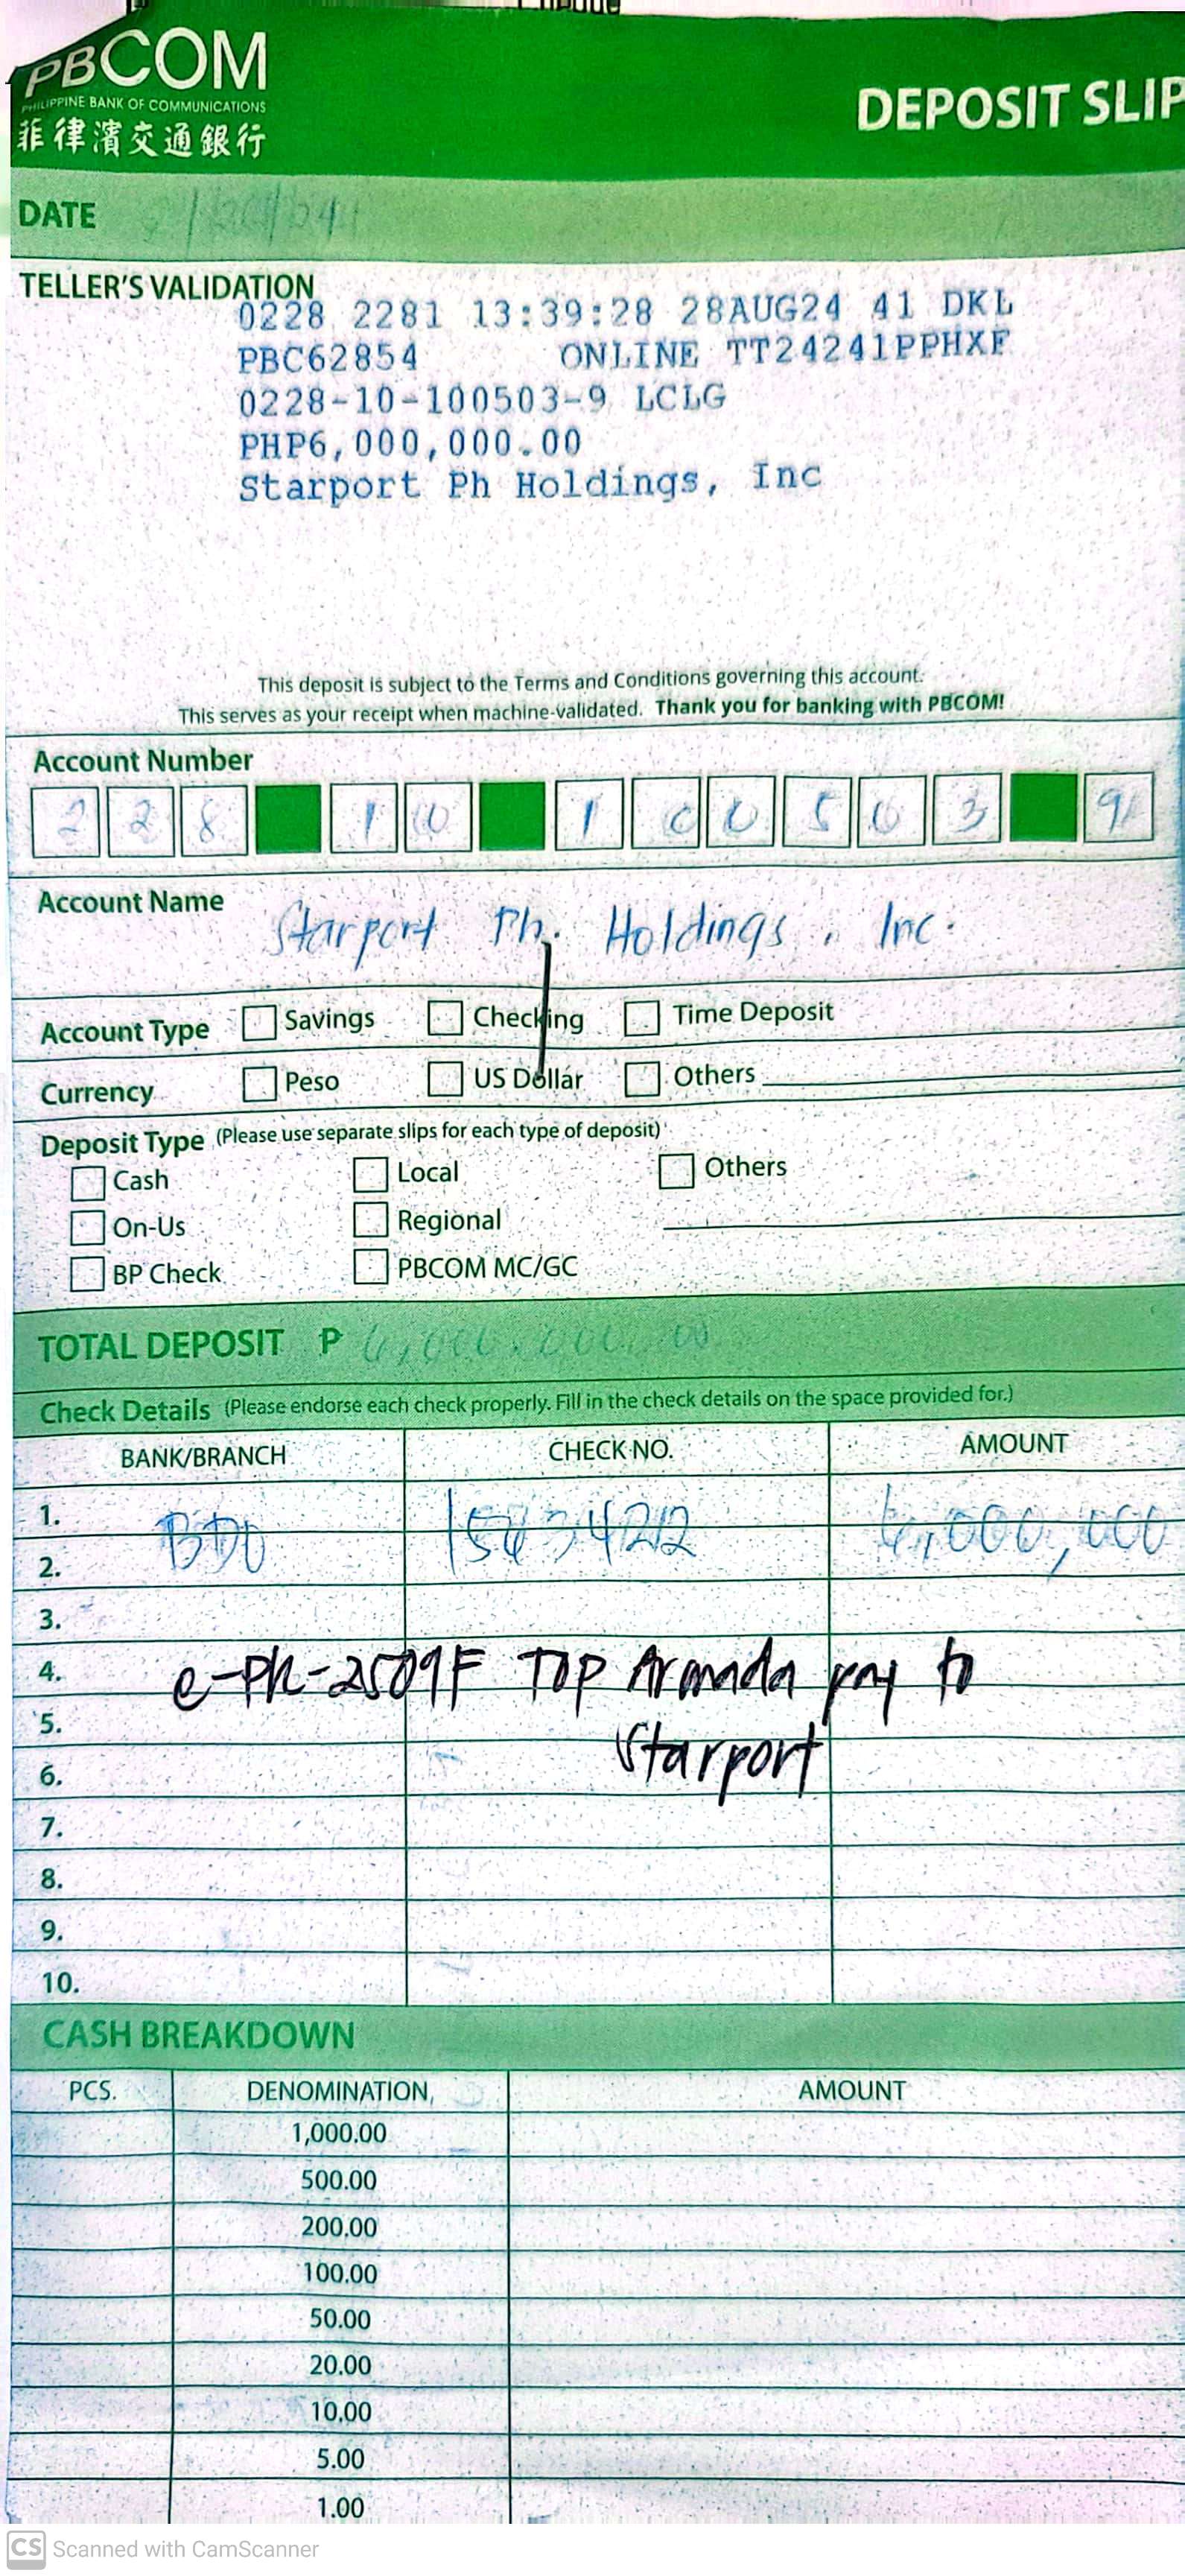 PBCOM
PHILIPPINE BANK OF COMMUNICATIONS
菲律濱交通銀行
DEPOSIT SLIP
DATE
TELLER'S VALIDATION
0228 2281 13:39:28 28AUG24 41 DKL
PBC62854 ONLINE TT24241PPHXF
0228-10-100503-9 LCLG
PHP6,000,000.00
Starport Ph Holdings, Inc
This deposit is subject to the Terms and Conditions governing this account.
This serves as your receipt when machine-validated. Thank you for banking with PBCOM!
Account Number
2 2 8 1 0 1 0 0 5 0 3 9
Account Name Starport Ph. Holdings, Inc.
Account Type Savings Checking Time Deposit
Currency Peso US Dollar Others
Deposit Type (Please use separate slips for each type of deposit)
Cash Local Others
On-Us Regional
BP Check PBCOM MC/GC
TOTAL DEPOSIT P 6,000,000.00
Check Details (Please endorse each check properly. Fill in the check details on the space provided for.)
BANK/BRANCH CHECK NO. AMOUNT
1. BDO 6,000,000
2.
3.
4. e-PH-2509F Top Armada pay to
5. Starport
6.
7.
8.
9.
10.
CASH BREAKDOWN
PCS. DENOMINATION AMOUNT
1,000.00
500.00
200.00
100.00
50.00
20.00
10.00
5.00
1.00
CS Scanned with CamScanner